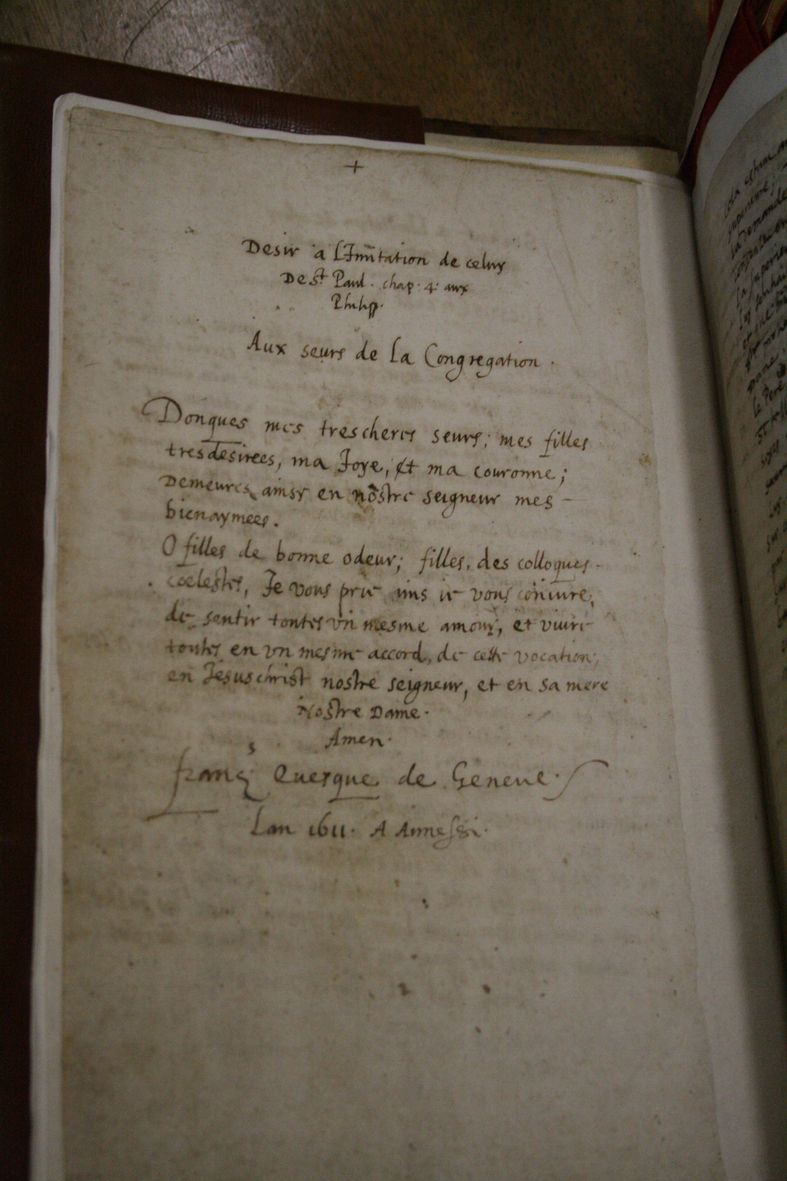 +
Desir a L'Imitation de celuy
De St Paul. chap. 4. aux
Philipp.
Aux seurs de la Congregation.
Donques mes trescheres seurs; mes filles
tresdesirees, ma Joye, Et ma couronne;
Demeures ainsy en nostre seigneur mes
bienaymees.
O filles de bonne odeur; filles, des colloques
cœlestes, Je vous prie mais ie vous coniure,
de sentir toutes vn mesme amour, et vivre
toutes en vn mesme accord, de cette vocation,
en Jesuschrist nostre seigneur, et en sa mere
Nostre Dame.
Amen.
franç Evesque de Geneve.
Lan 1611. A Annessi.